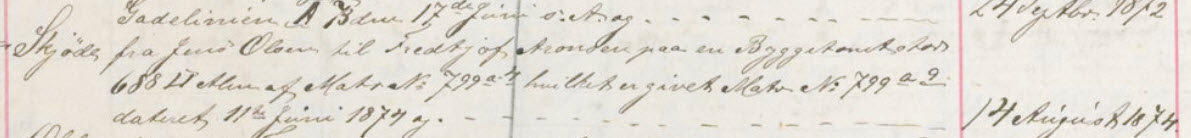 Gadelinien A B den 17de Juni s. A. og - - - - - - - 24 Septbr. 1872
Skjøde fra Jens Olsen til Fredtjof Aronsen paa en Byggetomt stor
688 □ Alen af Matr No 799 a. hvilket er givet Matr No 799 a 9.
dateret 11te Juni 1874 og. - - - - - - - - - - 14 August 1874